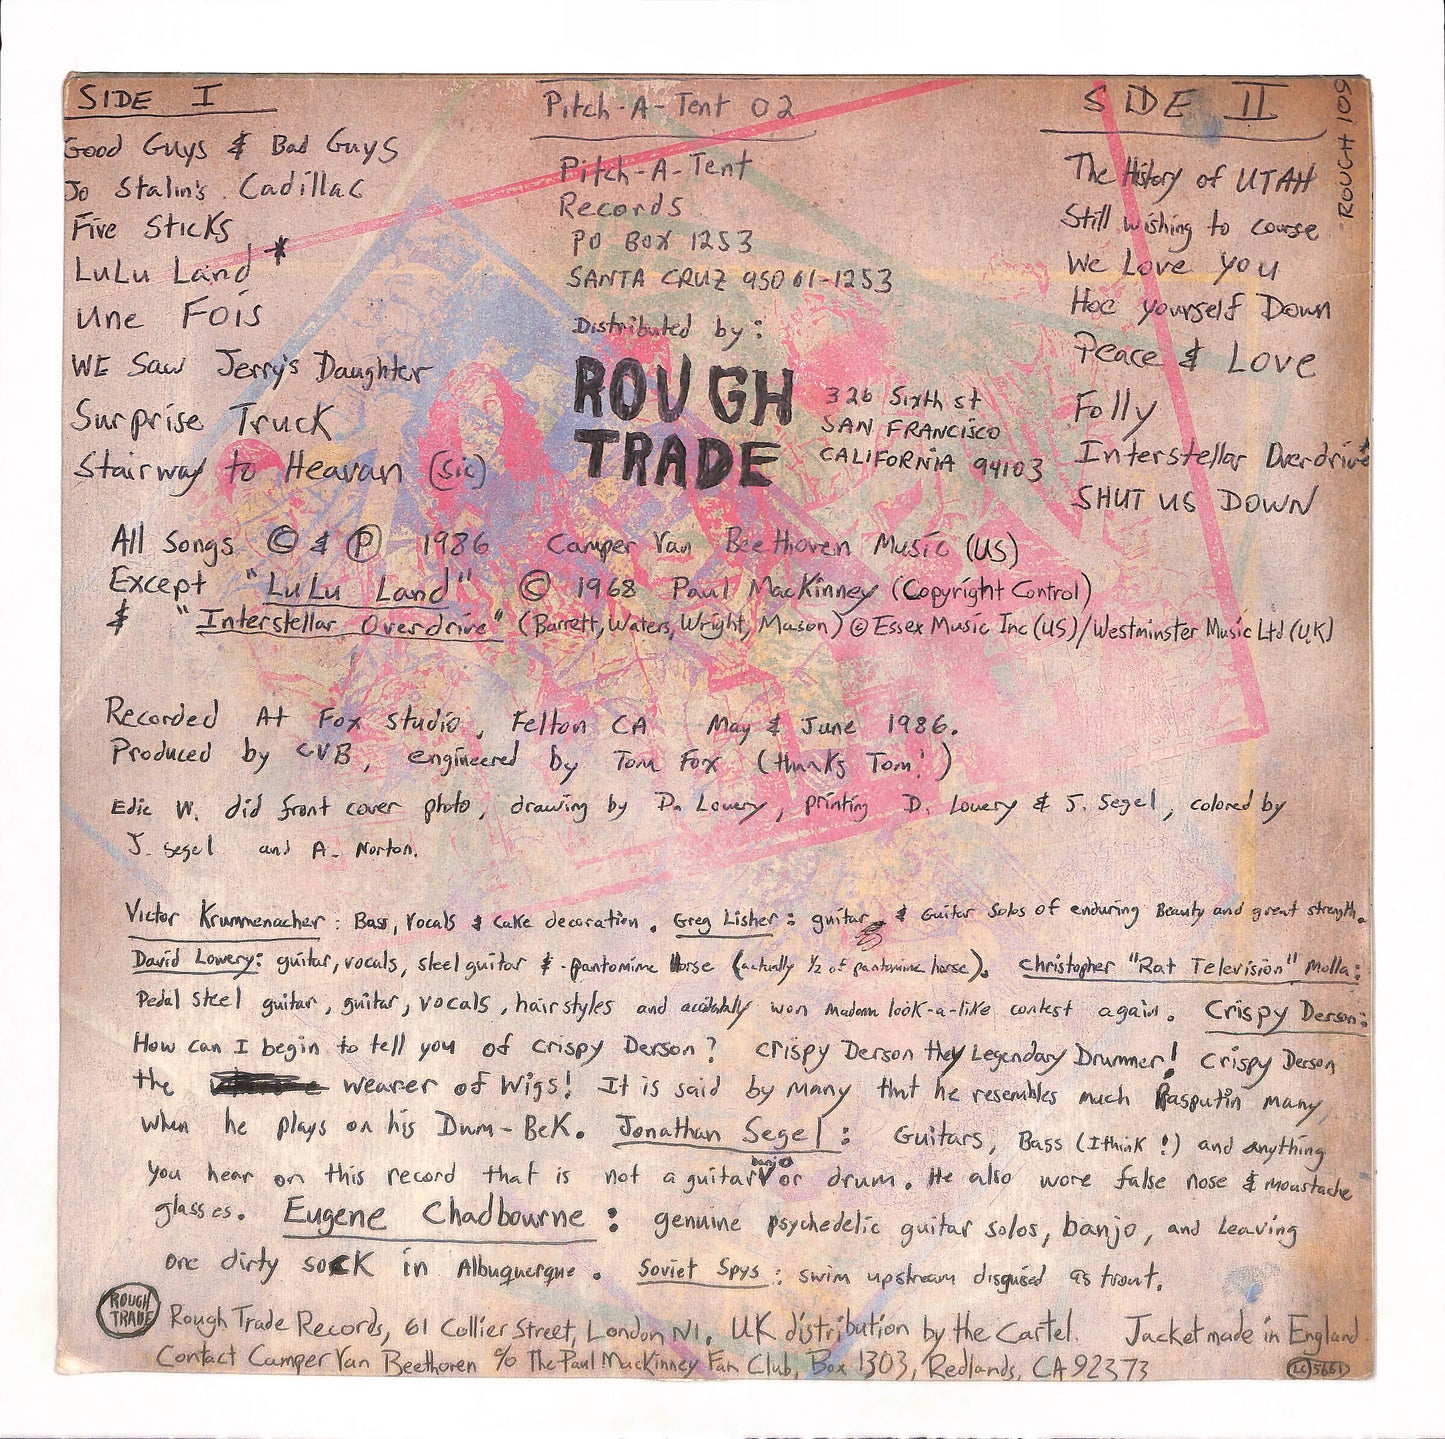 SIDE I
Good Guys & Bad Guys
Jo Stalin's Cadillac
Five Sticks
LuLu Land *
Une Fois
WE Saw Jerry's Daughter
Surprise Truck
Stairway to Heavan (sic)
Pitch-A-Tent 02
Pitch-A-Tent
Records
PO BOX 1253
SANTA CRUZ 95061-1253
Distributed by:
ROUGH
TRADE
326 Sixth st
SAN FRANCISCO
CALIFORNIA 94103
SIDE II
ROUGH 109
The History of UTAH
Still wishing to course
We Love You
Hoe yourself Down
Peace & Love
Folly
Interstellar Overdrive*
SHUT US DOWN
All Songs © & ℗ 1986 Camper Van Beethoven Music (US)
Except "LuLu Land" © 1968 Paul MacKinney (Copyright Control)
& "Interstellar Overdrive" (Barrett, Waters, Wright, Mason) © Essex Music Inc (US)/Westminster Music Ltd (UK)
Recorded At Fox Studio, Felton CA May & June 1986.
Produced by CVB, engineered by Tom Fox (thanks Tom!)
Edie W. did front cover photo, drawing by D. Lowery, printing D. Lowery & J. Segel, colored by
J. Segel and A. Norton.
Victor Krummenacher: Bass, Vocals & Cake decoration. Greg Lisher: guitar & Guitar Solos of enduring Beauty and great strength.
David Lowery: guitar, vocals, steel guitar & pantomime Horse (actually 1/2 of pantomime horse). Christopher "Rat Television" Molla:
Pedal steel guitar, guitar, vocals, hairstyles and accidentally won Madonna look-a-like contest again. Crispy Derson:
How can I begin to tell you of Crispy Derson? Crispy Derson they Legendary Drummer! Crispy Derson
the wearer of Wigs! It is said by many that he resembles much Rasputin many,
when he plays on his Dum-Bek. Jonathan Segel: Guitars, Bass (I think!) and anything
you hear on this record that is not a guitar banjo or drum. He also wore false nose & moustache
glasses. Eugene Chadbourne: genuine psychedelic guitar solos, banjo, and leaving
one dirty sock in Albuquerque. Soviet Spys: swim upstream disguised as trout.
ROUGH
TRADE
Rough Trade Records, 61 Collier Street, London N1. UK distribution by the Cartel. Jacket made in England
Contact Camper Van Beethoven c/o The Paul MacKinney Fan Club, Box 1303, Redlands, CA 92373
LC 5661